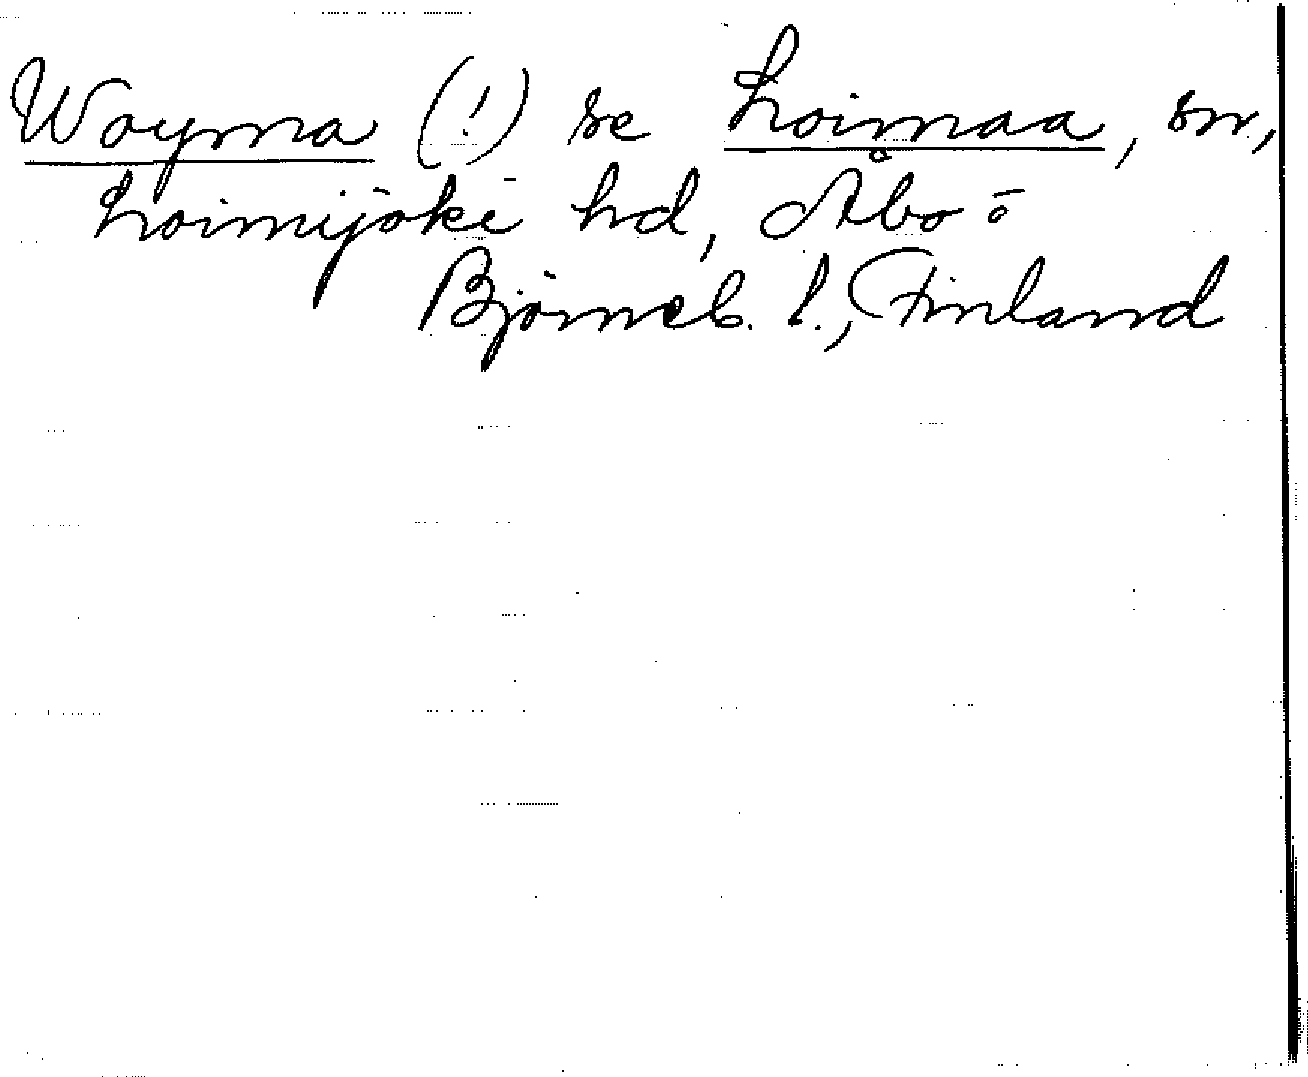 Woyma (!) se Loimaa, sn,
Loimijoki hd, Åbo o
Björneb. l., Finland